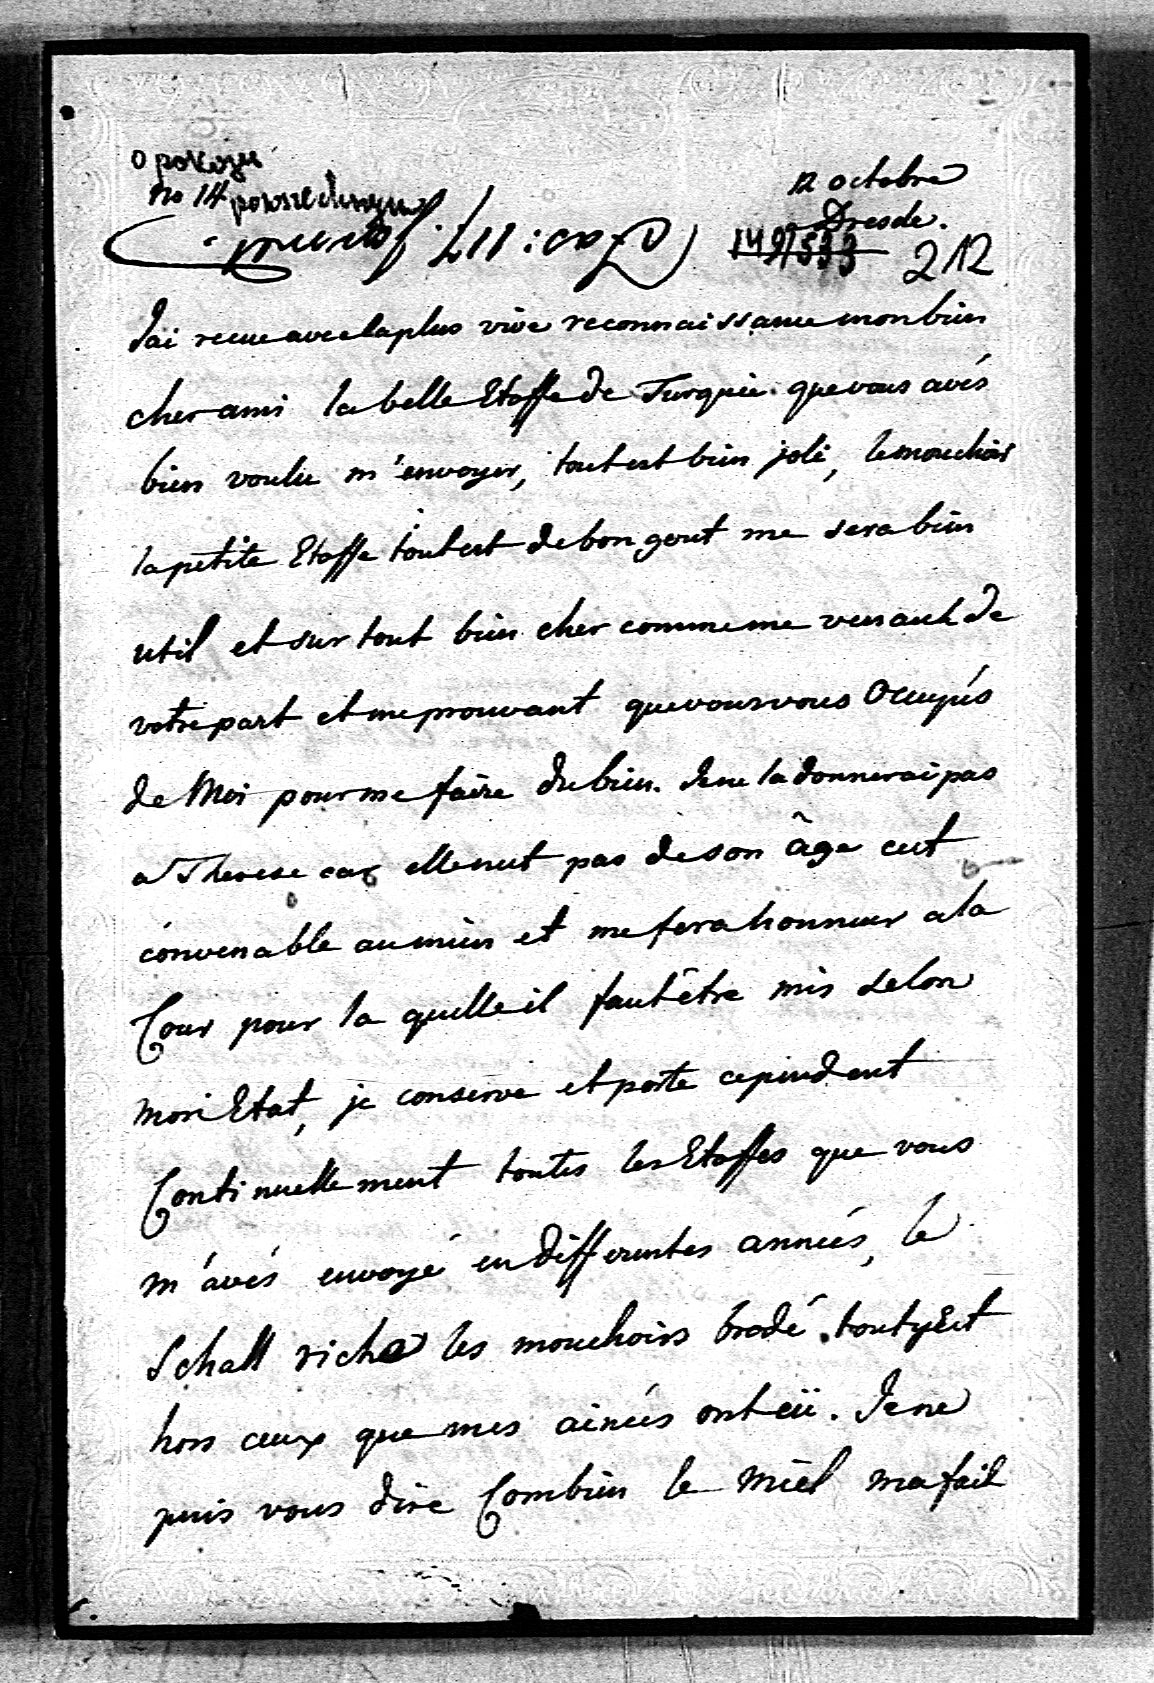 o pokoju
no 14 powszechnym
12 octobre
Dresde.
149/533 212
J'ai recue avec la plus vive reconnaissance mon bien
cher ami la belle Etoffe de Turquie que vous avés
bien voulu m'envoyer, tout est bien joli, le mouchoir
la petite Etoffe tout est de bon gout me sera bien
util et sur tout bien cher comme me venant de
votre part et me prouvant que vous vous occupés
de Moi pour me faire du bien. Je ne la donnerai pas
a Therese car elle n'est pas de son âge c'est
convenable au mien et me fera honneur a la
Cour pour la quelle il faut être mis selon
mon Etat, je conserve et porte cependent
Continuellement toutes les Etoffes que vous
m'avés envoyé en differentes années, le
Schall riche les mouchoirs brodé. tout y Est
hors ceux que mes ainées ont eü. Je ne
puis vous dire Combien le Miel ma fait